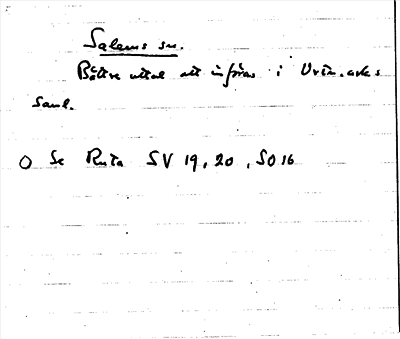 Salems sn.
Bättre uttal att införas i Ortn.ark:s
saml.
O Se Ruta SV 19, 20, SO 16